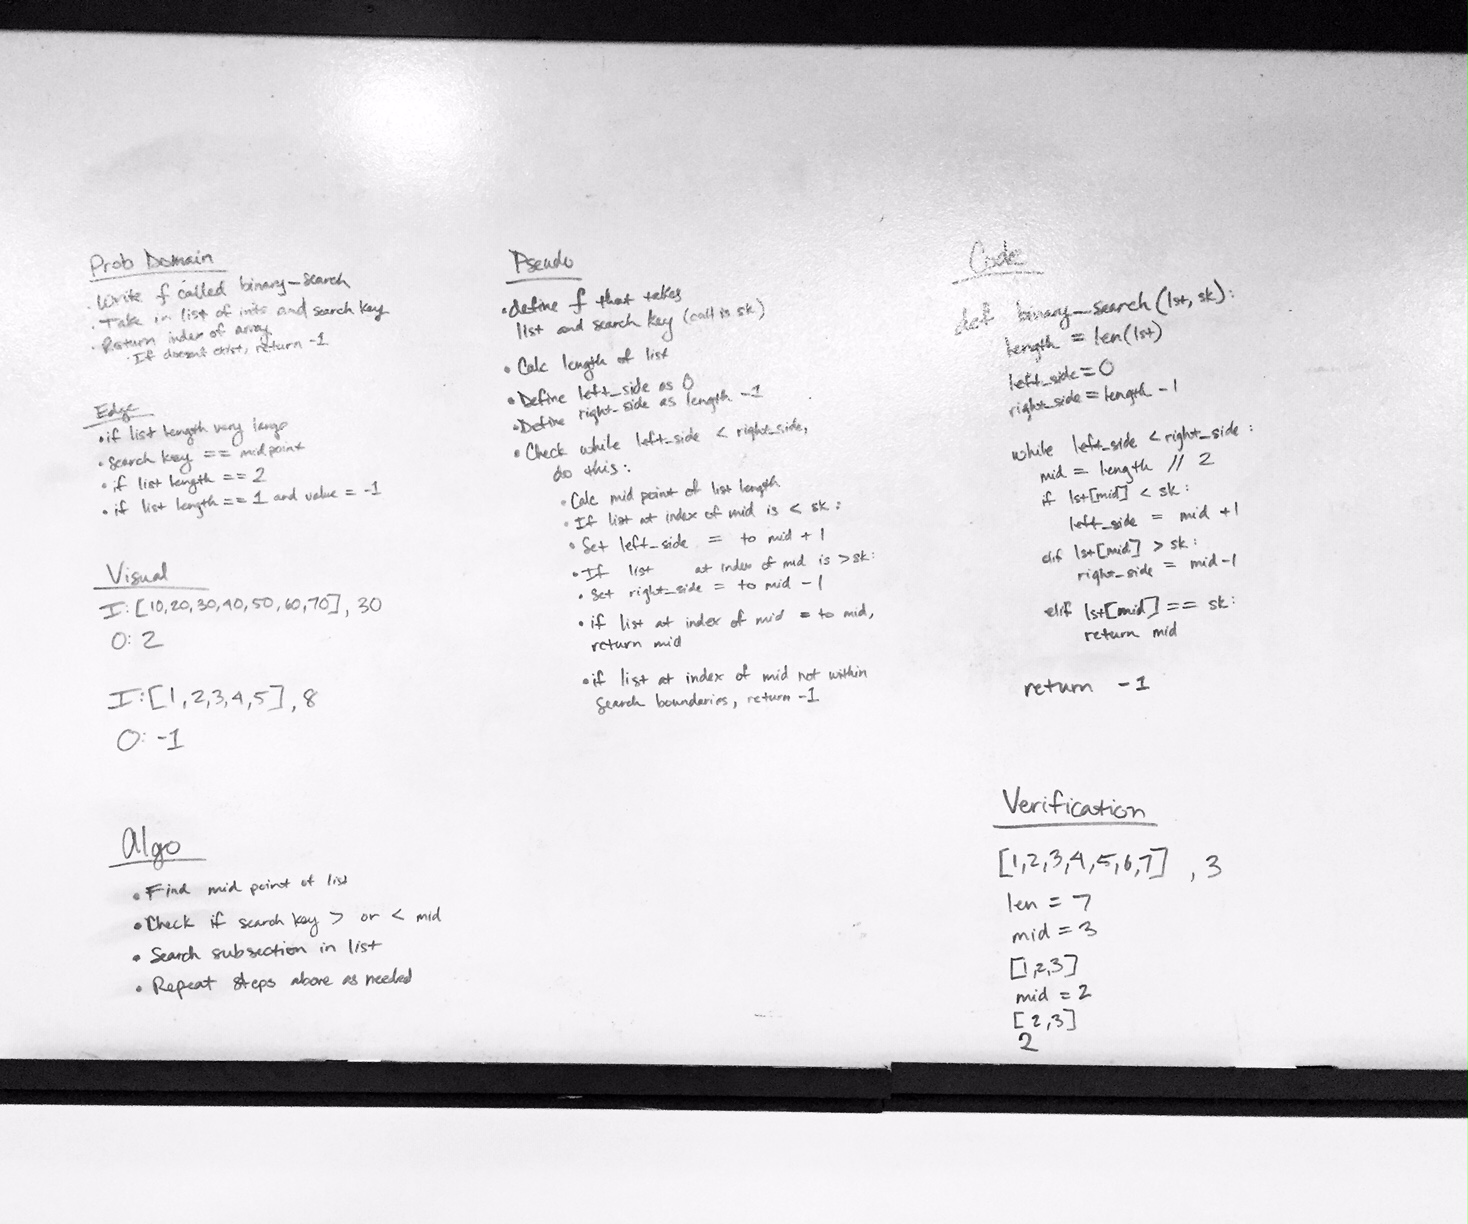 Prob Domain
· Write f called binary_search
· Take in list of ints and search key
· Return index of array
· If doesnt exist, return -1
Edge
• if list length very large
• search key == midpoint
• if list length == 2
• if list length == 1 and value = -1
Visual
I: [10,20,30,40,50,60,70], 30
O: 2
I: [1,2,3,4,5], 8
O: -1
Algo
• Find mid point of list
• Check if search key > or < mid
• Search subsection in list
• Repeat steps above as needed
Pseudo
• define f that takes
list and search key (call is sk)
• Calc length of list
• Define left_side as 0
• Define right_side as length -1
• Check while left_side < right_side,
do this:
• Calc mid point of list length
• If list at index of mid is < sk:
• Set left_side = to mid + 1
• If list at index of mid is > sk:
• Set right_side = to mid - 1
• if list at index of mid = to mid,
return mid
• if list at index of mid not within
search boundaries, return -1
Code
def binary_search(lst, sk):
length = len(lst)
left_side = 0
right_side = length - 1
while left_side < right_side:
mid = length // 2
if lst[mid] < sk:
left_side = mid +1
elif lst[mid] > sk:
right_side = mid-1
elif lst[mid] == sk:
return mid
return -1
Verification
[1,2,3,4,5,6,7], 3
len = 7
mid = 3
[1,2,3]
mid = 2
[2,3]
2